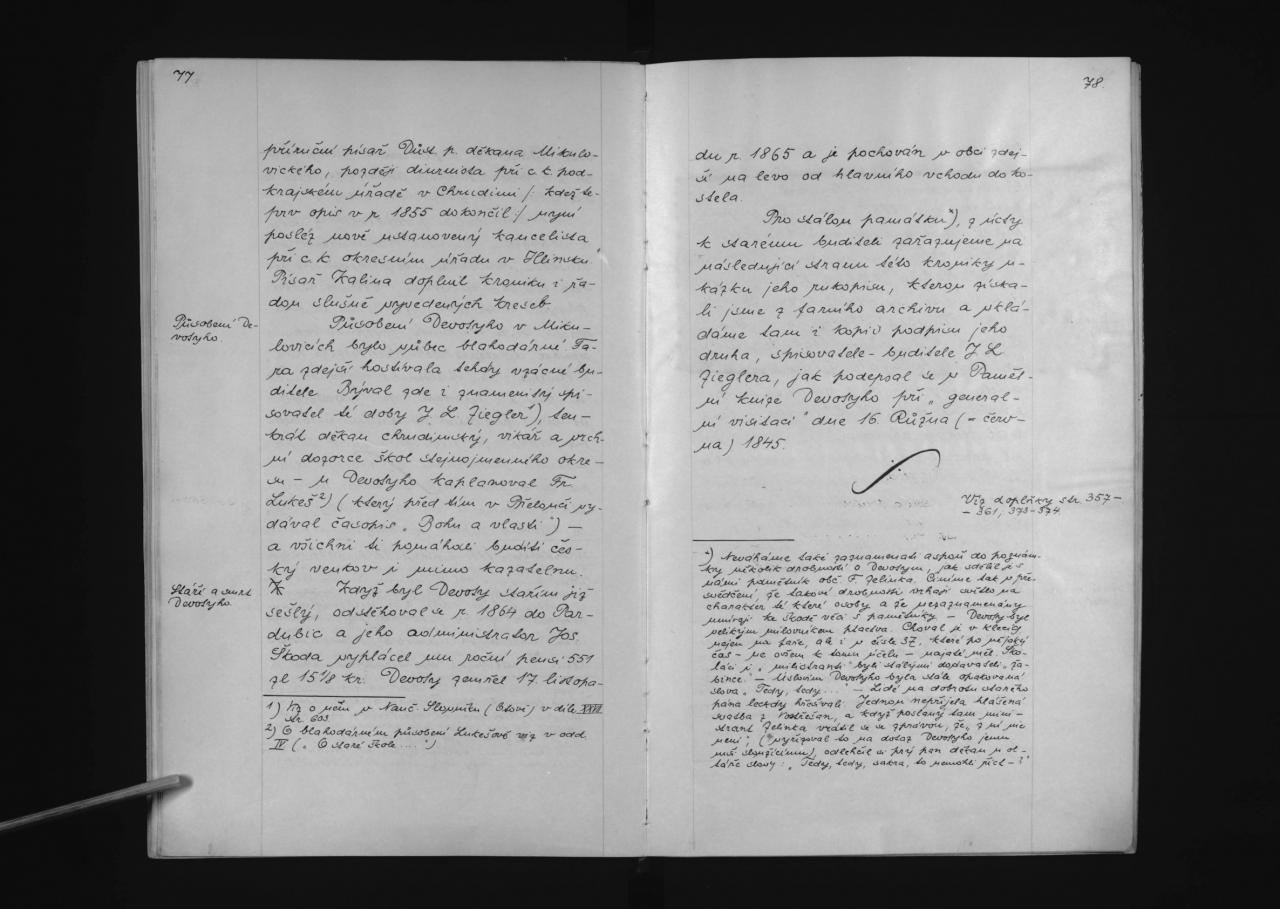 77
příruční písař Důst. p. děkana Mikulo-
vického, později diurnista při c. k. pod-
krajském úřadě v Chrudimi /: kdež te-
prv opis v r. 1855 dokončil :/ nyní
posléz nově ustanovený kancelista
při c. k. okresním úřadu v Hlinsku."
Písař Kalina doplnil kroniku i řa-
dou slušně vyvedených kreseb.
Působení De-
votyho.
Působení Devotyho v Miku-
lovicích bylo vůbec blahodárné. Fa-
ra zdejší hostívala tehdy vzácné bu-
ditele. Býval zde i znamenitý spi-
sovatel té doby J. L. Ziegler¹), ten-
krát děkan chrudimský, vikář a vrch-
ní dozorce škol stejnojmenného okre-
su – u Devotyho kaplanoval Fr.
Lukeš²) (který před tím v Přelouči vy-
dával časopis „Bohu a vlasti") –
a všichni ti pomáhali buditi čes-
ký venkov i mimo kazatelnu.
Stáří a smrt
Devotyho.
Když byl Devoty stařím již
sešlý, odstěhoval se r. 1864 do Par-
dubic a jeho administrator Jos.
Škoda vyplácel mu roční pensi 551
zl 15⅛ kr. Devoty zemřel 17. listopa-
1) Viz o něm v Nauč. Slovníku (Ottově) v díle XXVII
str. 603.
2) O blahodárném působení Lukešově viz v odd.
IV („O staré škole....")
78.
du r. 1865 a je pochován v obci zdej-
ší na levo od hlavního vchodu do ko-
stela.
Pro stálou památku*), z úcty
k starému buditeli zařazujeme na
následující stranu této kroniky u-
kázku jeho rukopisu, kterou získa-
li jsme z farního archivu a vklá-
dáme tam i kopii podpisu jeho
druha, spisovatele-buditele J. L.
Zieglera, jak podepsal se v Pamět-
ní knize Devotyho při „general-
ní visitaci" dne 16. Růžna (= červ-
na) 1845.
Viz doplňky str. 357–
– 361, 373-374.
*) Neváháme také zaznamenati aspoň do poznám-
ky několik drobností o Devotym, jak sdělil je s
námi pamětník obč. F. Jelinka. Činíme tak v pře-
svědčení, že takové drobnosti vrhají světlo na
charakter té které osoby a že nezaznamenány
umírají ke škodě věci s pamětníky. – Devoty byl
velikým milovníkem ptactva. Choval je v klecích
nejen na faře, ale i v čísle 37, které po nějaký
čas – ne ovšem k tomu účelu – najaté měl. Ško-
láci i „ministranti" byli stálými dodavateli „za-
bince." – Úslovím Devotyho byla stále opakovaná
slova „Tedy, tedy..." – Lidé na dobrotu starého
pána leckdy hřešívali. Jednou nepřijela hlášená
svatba z Vostřešan, a když poslaný tam mini-
strant Jelinka vrátil se se zprávou, že „z ní nic
není", (vyřizoval to na dotaz Devotyho jemu
mši sloužícímu), odlehčil si prý pan děkan u ol-
táře slovy: „Tedy, tedy, sakra, to nemohli říct –?